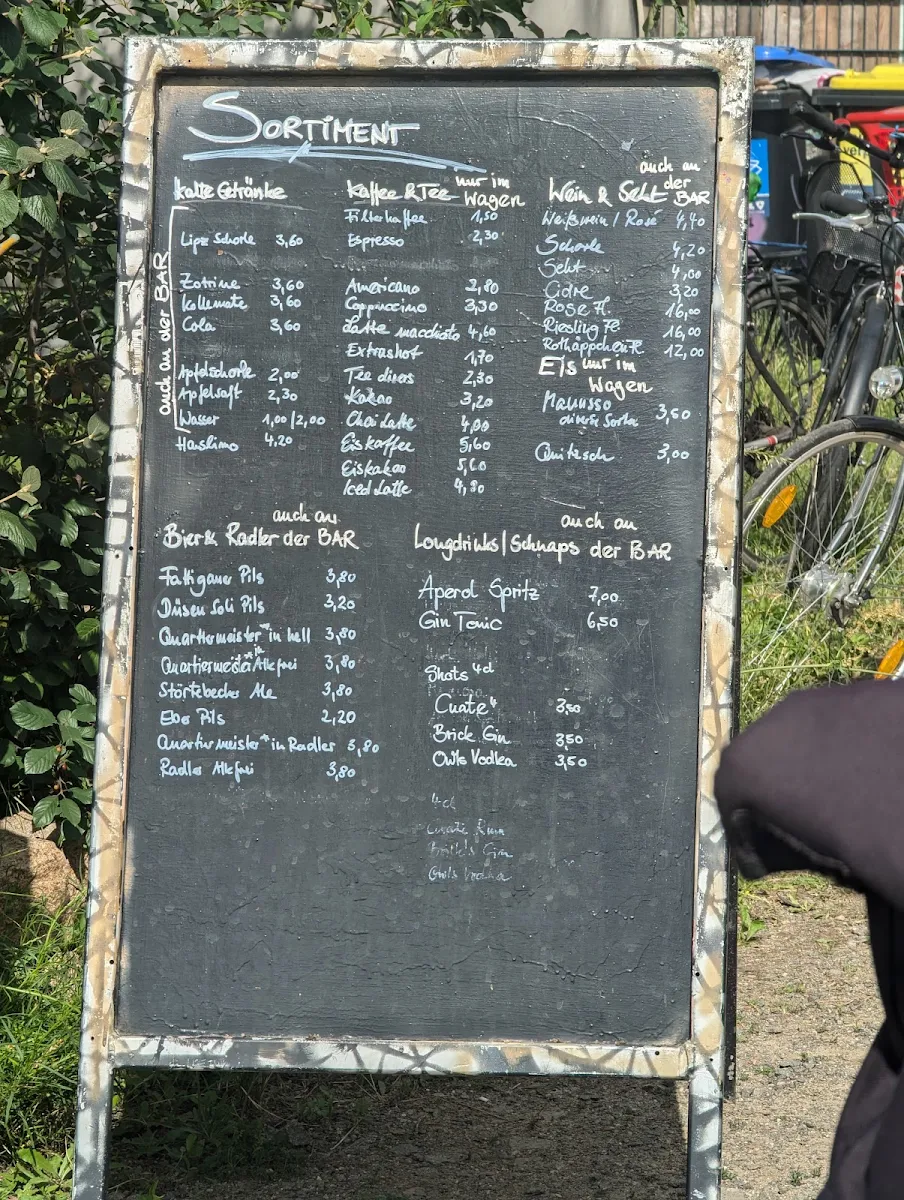 SORTIMENT
Kalte Getränke
auch an der BAR
Lipz Schorle 3,60
Zotrine 3,60
Kollemate 3,60
Cola 3,60
Apfelschorle 2,00
Apfelsaft 2,30
Wasser 1,00/2,00
4,20
Kaffee & Tee nur im Wagen
Filterkaffee 1,50
Espresso 2,30
Americano 2,80
Cappuccino 3,30
Latte macchiato 4,60
Extrashot 1,70
Tee divers 2,30
Kakao 3,20
Chai Latte 4,00
Eiskaffee 5,60
Eiskakao 5,60
Iced Latte 4,80
Wein & Sekt auch an der BAR
Weißwein / Rosé 4,40
Schorle 4,20
Sekt 4,00
Cidre 3,20
Rose Fl. 16,00
Riesling Fl. 16,00
Rotkäppchen Fl. 12,00
Eis nur im Wagen
diverse Sorten 3,50
Quitzsch 3,00
Bier & Radler auch an der BAR
Pils 3,80
Düsen Soli Pils 3,20
Quartiermeister*in hell 3,80
Quartiermeister*in Alkfrei 3,80
Störtebecker Ale 3,80
Ebo Pils 2,20
Quartiermeister*in Radler 3,80
Radler Alkfrei 3,80
Longdrinks | Schnaps auch an der BAR
Aperol Spritz 7,00
Gin Tonic 6,50
Shots 4cl
3,50
Brick Gin 3,50
Owls Vodka 3,50
4cl
Gin
Owls Vodka